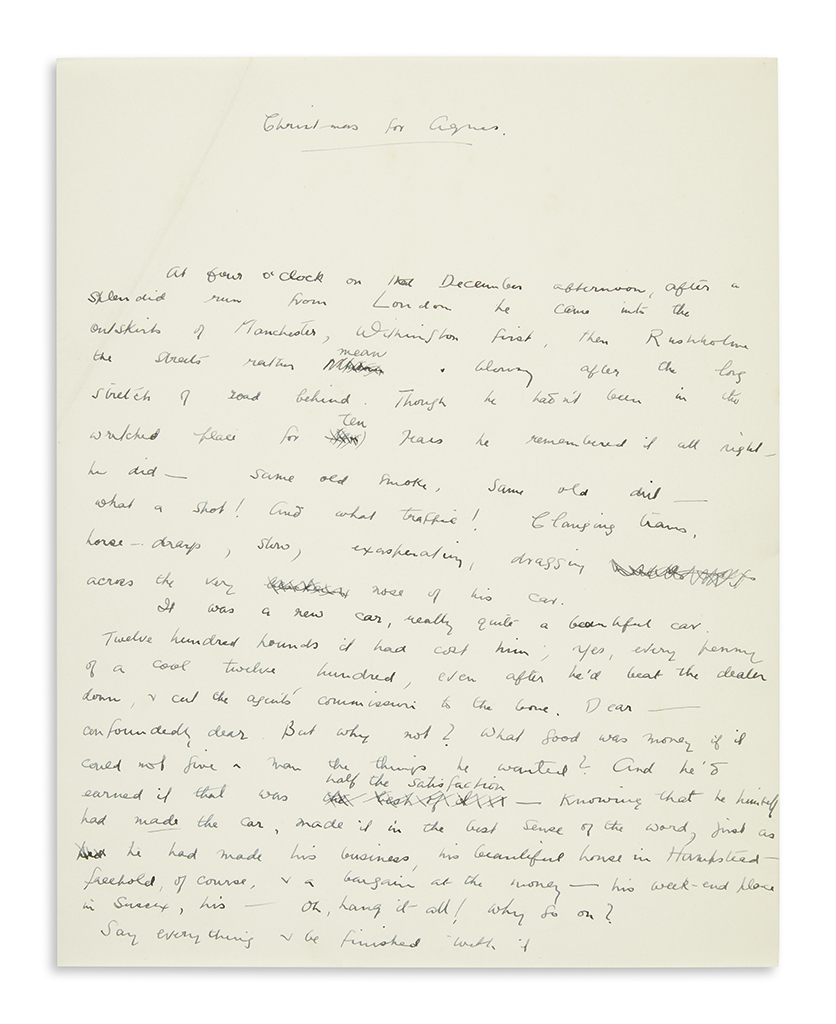 Christmas for Agnes.
At four o'clock on that December afternoon, after a
splendid run from London he came into the
outskirts of Manchester, Withington first, then Rusholme
mean
the streets rather blowsy after the long
stretch of road behind. Though he hadn't been in the
ten
wretched place for years he remembered it all right –
he did — same old smoke, same old dirt —
what a spot! And what traffic! Clanging trams,
horse-drays, slow, exasperating, dragging
across the very nose of his car.
It was a new car, really quite a beautiful car.
Twelve hundred pounds it had cost him; yes, every penny
of a cool twelve hundred, even after he'd beat the dealer
down, & cut the agents' commission to the bone. Dear —
confoundedly dear. But why not? What good was money if it
could not give a man the things he wanted? And he'd
half the satisfaction
earned it that was — Knowing that he himself
had made the car, made it in the best sense of the word, just as
he had made his business, his beautiful house in Hampstead –
freehold, of course, & a bargain at the money — his week-end place
in Sussex, his — Oh, hang it all! Why go on?
Say everything & be finished with it